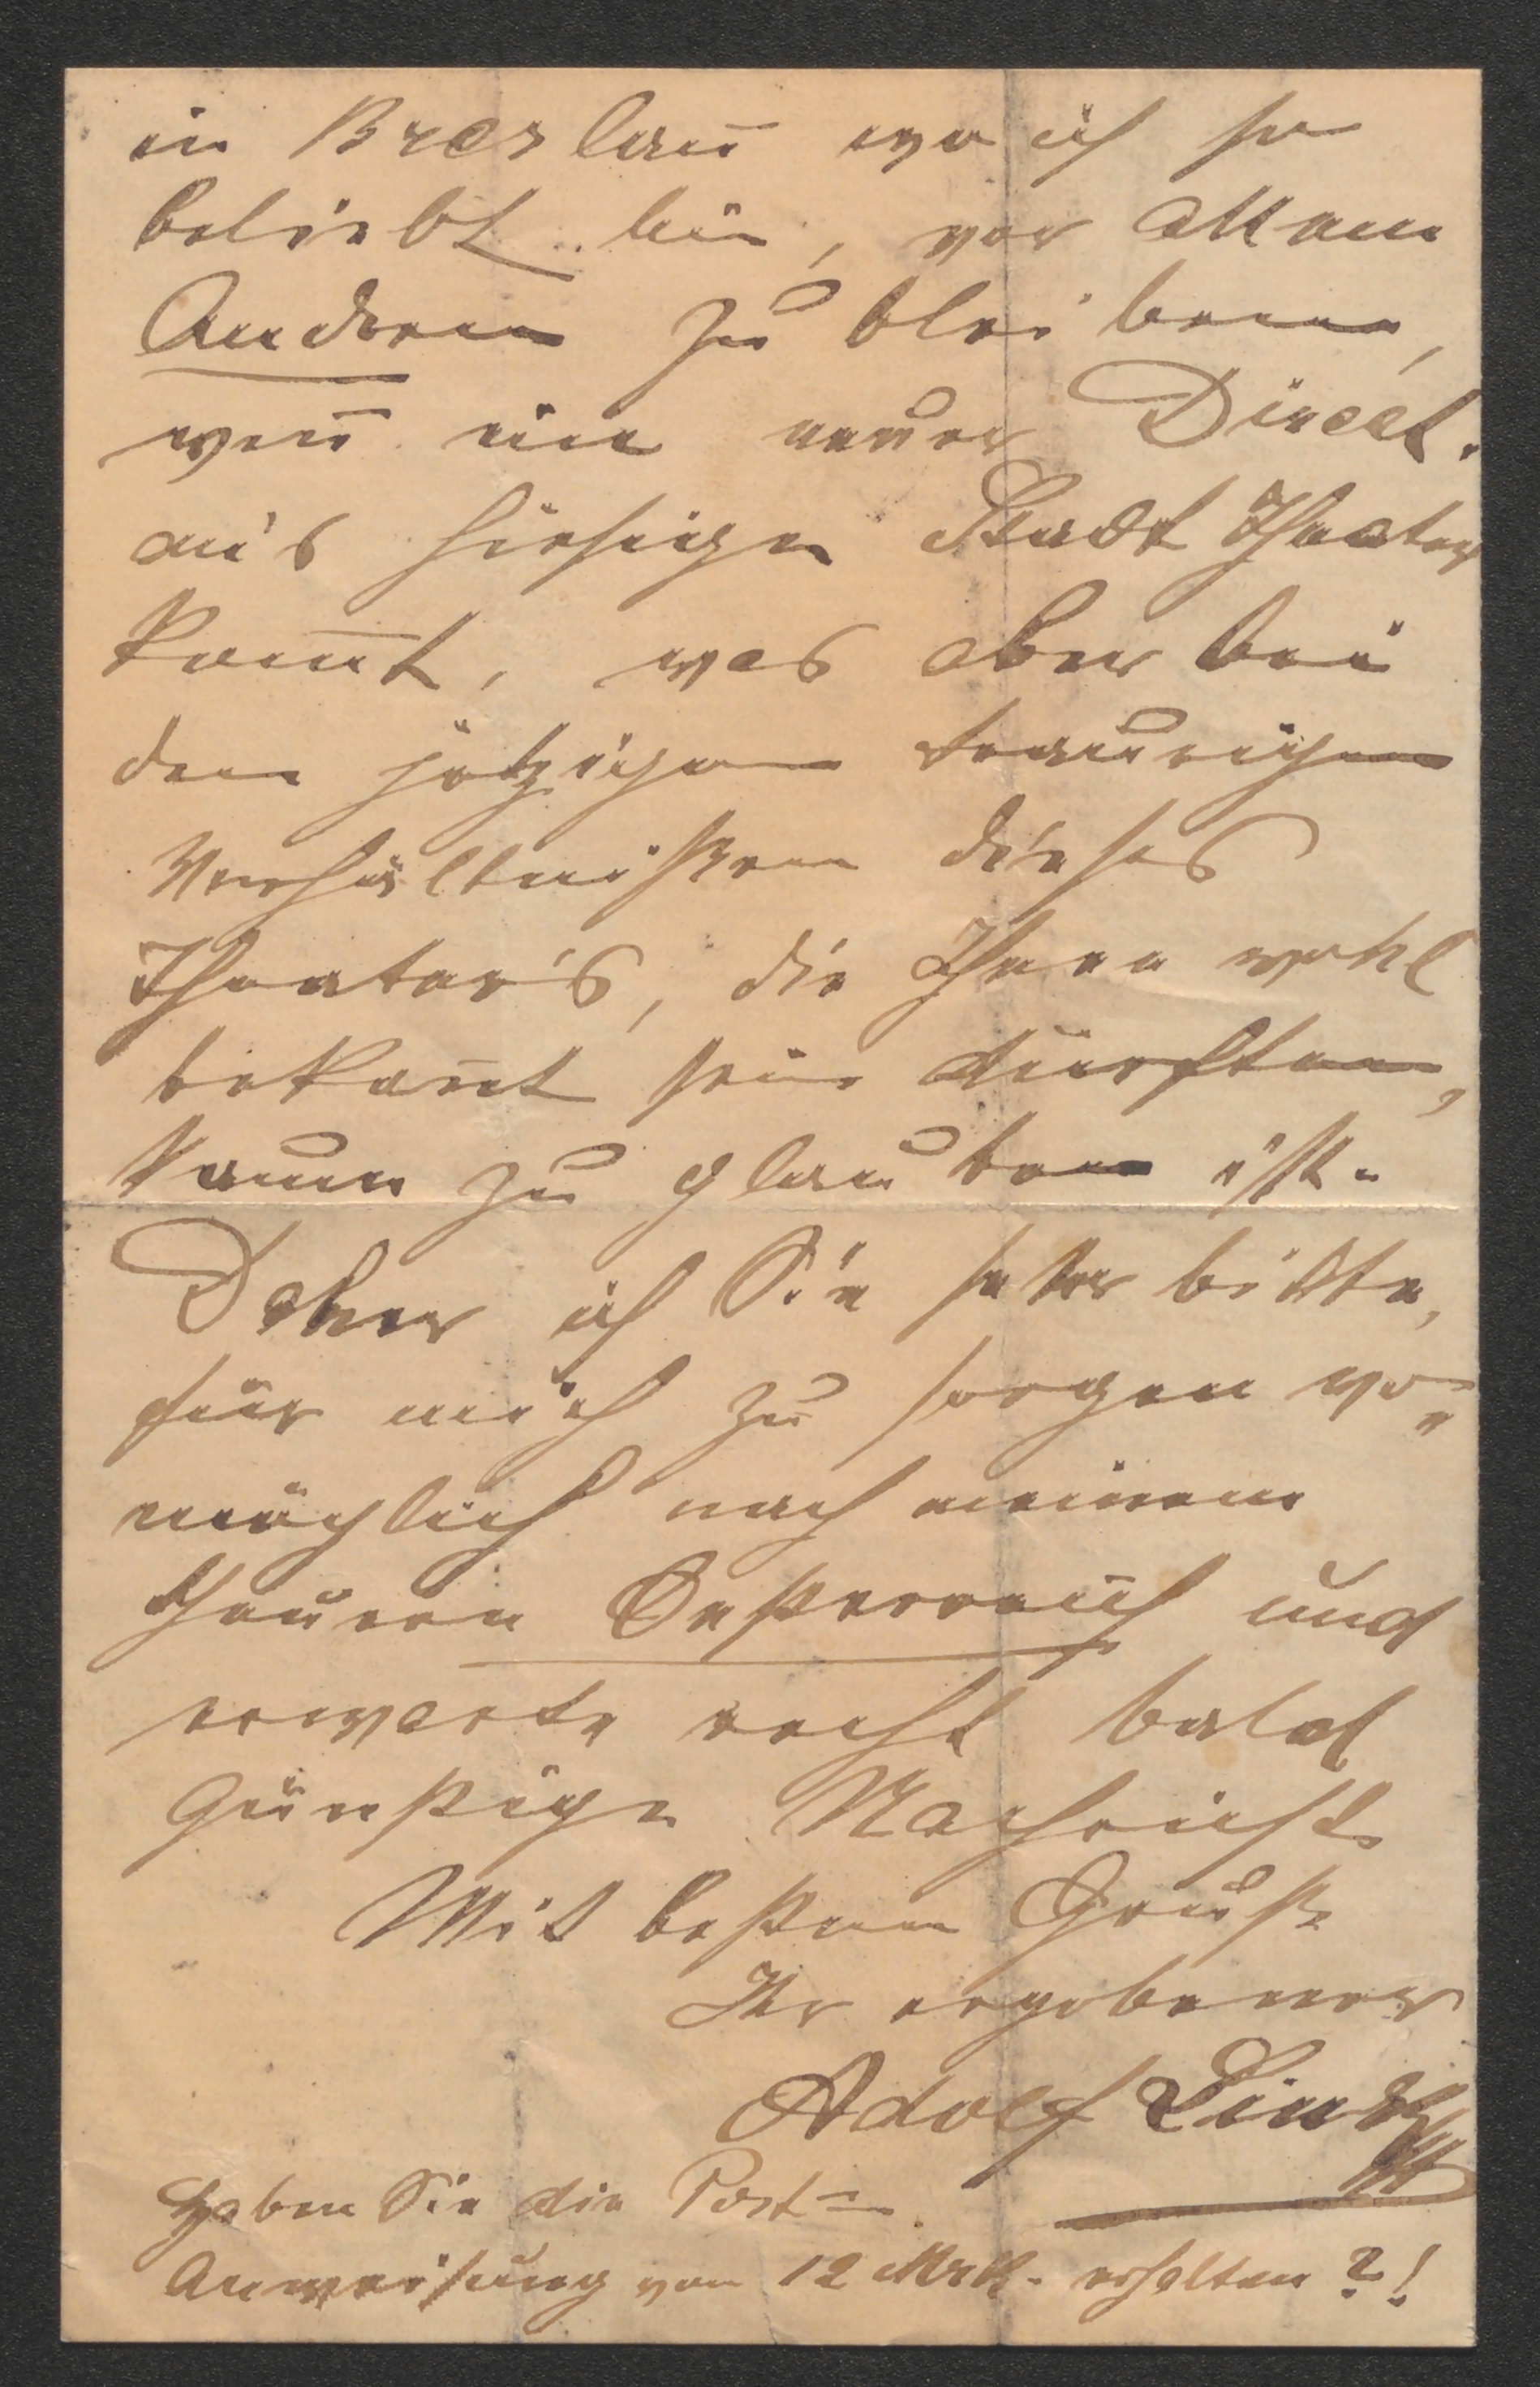 in Breslau wo ich so
beliebt bin, vor allem
Anderen zu bleiben,
weñ ein neuer Direct.
an's hiesige Stadt Theater
kom̄t, was aber bei
den jetzigen traurigen
Verhältnißen dieses
Theater's, die Ihnen wohl
bekañt sein dürften,
kaum zu glauben ist.
Daher ich Sie sehr bitte,
für mich zu sorgen wo„
möglich nach meinem
theuern Oesterreich und
erwarte recht bald
günstige Nachricht
Mit bestem Gruße
Ihr ergebener
Adolf Link
Haben Sie die Post=
Anweisung von 12 Mrk. erhalten ?!